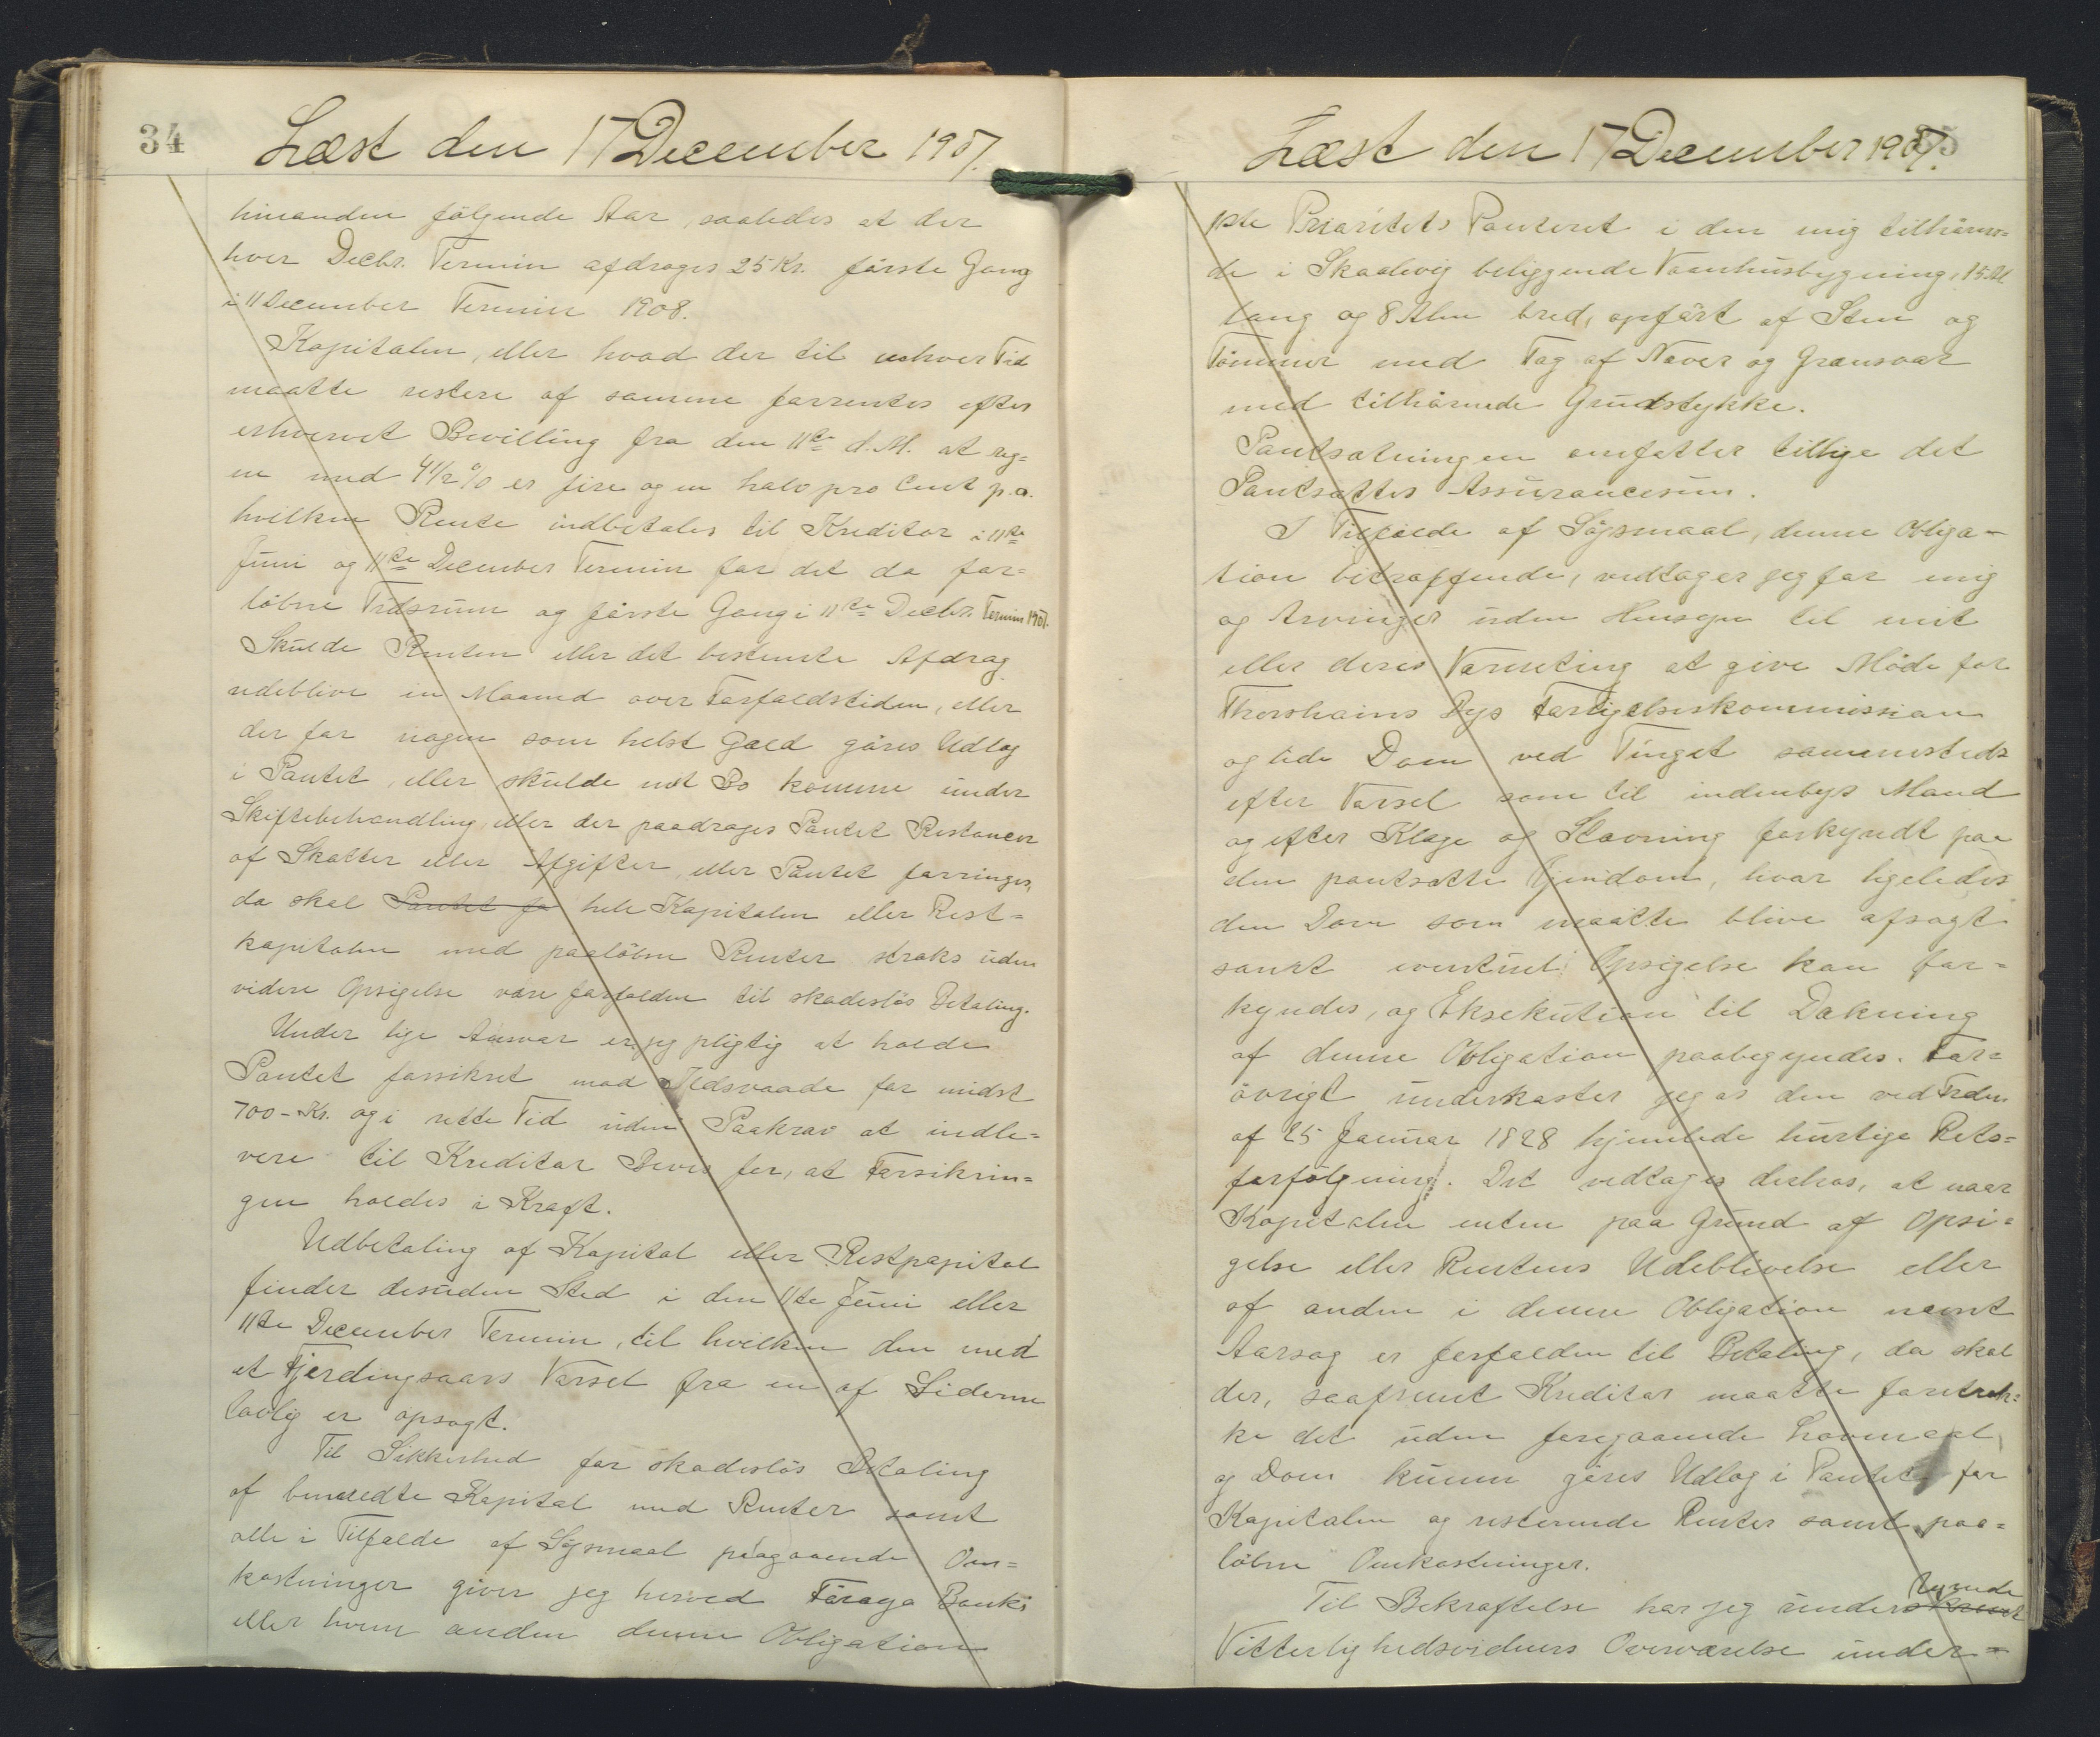 34
Læst den 17 December 1907.
hinanden følgende Aar, saaledes at der
hver Decbr. Termin afdrages 25 Kr. første Gang
i 11 December Termin 1908.
Kapitalen, eller hvad der til enhver Tid
maatte restere af samme forrentes efter
erhvervet Bevilling fra den 11te d. M. at reg=
ne med 4 1/2 % er fire og en halv pro Cent p.a.
hvilken Rente indbetales til Kreditor i 11te
Juni og 11te December Termin for det da for=
løbne Tidsrum og første Gang i 11te Decbr. Termin 1907.
Skulde Renten eller det bestemte Afdrag
udeblive en Maaned over Forfaldstiden, eller
der for nogen som helst Gæld gøres Udlæg
i Pantet, eller skulde mit Bo komme under
Skiftebehandling, eller der paadrages Pantet Restancer
af Skatter eller Afgifter, eller Pantet forringes,
da skal Pantet fo hele Kapitalen eller Rest=
kapitalen med paaløbne Renter straks uden
videre Opsigelse være forfalden til skadesløs Betaling.
Under lige Ansvar er jeg pligtig at holde
Pantet forsikret mod Ildsvaade for mindst
700 - Kr. og i rette Tid uden Paakrav at indle=
vere til Kreditor Bevis for, at Forsikrin=
gen holdes i Kraft.
Udbetaling af Kapital eller Restpapital
finder desuden Sted i den 11te Juni eller
11te December Termin, til hvilken den med
et Fjerdingsaars Varsel fra en af Siderne
lovlig er opsagt.
Til Sikkerhed for skadesløs Betaling
af benævdte Kapital med Renter samt
alle i Tilfælde af Søgsmaal paagaaende Om=
kostninger giver jeg herved Førøya Banki
eller hvem anden denne Obligation
35
Læst den 17 December 1907.
1ste Prioritets Panteret i den mig tilhøren=
de i Skaalevig beliggende Vaanhusbygning, 15 Al
lang og 8 Alen bred, opført af Sten og
Tømmer med Tag af Næver og Grønsvær
med tilhørende Grudstykke.
Pantsætningen omfatter tillige det
Pantsattes Assurancesum.
I Tilfælde af Søgsmaal, denne Obliga-
tion betræffende, vedtager jeg for mig
og Arvinger uden Hensyn til mit
eller deres Værneting at give Møde for
Thorshavns Bys Forligelseskommission
og lide Dom ved Tinget sammesteds
efter Varsel som til indenbys Mand
og efter Klage og Stævning forkyndt paa
den pantsatte Ejendom, hvor ligeledes
den Dom som maatte blive afsagt
samt eventuel Opsigelse kan for=
kyndes, og Eksekution til Dækning
af denne Obligation paabegyndes. For=
øvrigt underkaster jeg os den ved Frdn.
af 25 Januar 1828 hjemlede hurtige Rets=
forfølgning. Det vedtages derhos, at naar
Kapitalen enten paa Grund af Opsi=
gelse eller Rentens Udeblivelse eller
af anden i denne Obligation nævnt
Aarsag er forfalden til Betaling, da skal
der, saafremt Kreditor maatte foretræk=
ke det uden foregaaende Lovmaal
og Dom kunne gøres Udlæg i Pantet for
Kapitalen og resterende Renter samt paa=
løbne Omkostninger.
Til Bekræftelse har jeg under
Vitterlighedsvidners Overværelse under=